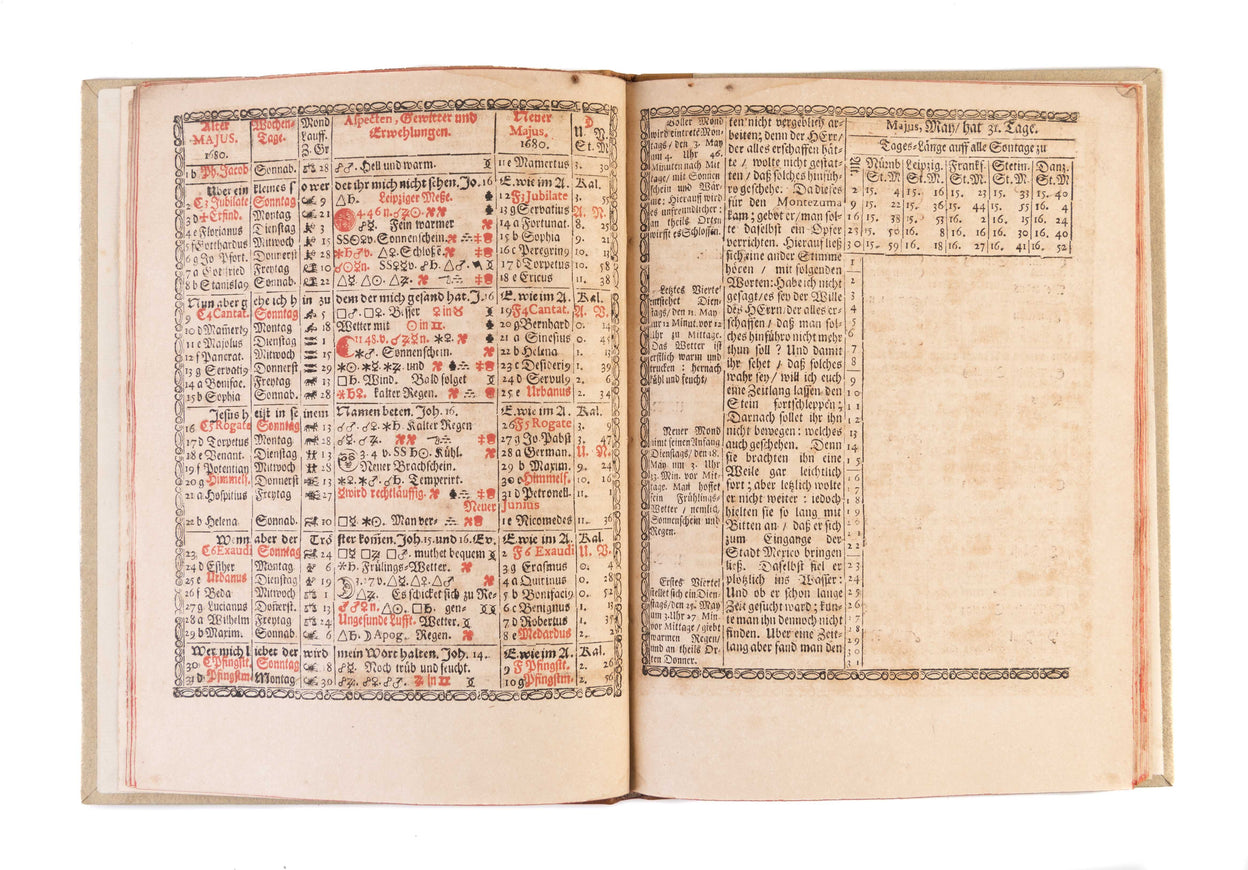 Alter
MAJUS.
1680.
Wochen-
Tage.
Mond
Lauff.
Z. Gr
Aspecten, Gewitter und
Erwehlungen.
Neuer
Majus.
1680.
U. N.
St. M.
1 b Ph. Jacob Sonnab. 28 ☍♂. Hell und warm. 11 e Mamertus 3. 30
Uber ein kleines s o wer det ihr mich nicht sehen. Jo. 16 E. wie im A. Kal.
2 C3 Jubilate Sonntag 9 △♄. Leipziger Meße. 12 F3 Jubilate 3. 55
3 d Erfind. Montag 21 4 46 n. 13 g Servatius A. N.
4 e Florianus Dienstag 3 Fein warmer 14 a Fortunat. 8. 25
5 f Gotthardus Mitwoch 15 Sonnenschein. 15 b Sophia 9. 21
6 g Jo Pfort. Donerst 28 Schloße. 16 c Peregrin9 10. 13
7 a Gottfried Freytag 10 17 d Torpetus 10. 58
8 b Stanisla9 Sonnab. 22 18 e Ericus 11. 38
Nun aber g ehe ich h in zu dem der mich gesand hat. J. 16 E. wie im A. Kal.
9 C4 Cantat. Sonntag 5 □♂. □♀. Bisser ♀ in ♉ 19 F4 Cantat. A. V.
10 d Mamer9 Montag 18 Wetter mit ☉ in ♊. 20 g Bernhard 0. 14
11 e Majolus Dienstag 1 11 48. v. 21 a Sinesius 0. 45
12 f Pancrat. Mitwoch 15 Sonnenschein. 22 b Helena 1. 13
13 g Servati9 Donnerst 29 und 23 c Desideri9 1. 39
14 a Bonifac. Freytag 13 □♄. Wind. Bald folget 24 d Servul9 2. 6
15 b Sophia Sonnab. 28 kalter Regen. 25 e Urbanus 2. 34
Jesus h eißt in se inem Namen beten. Joh. 16. E. wie im A. Kal.
16 C5 Rogate Sonntag 13 Kalter Regen 26 F5 Rogate 3. 9
17 d Torpetus Montag 28 27 g Jo. Pabst 3. 47
18 e Venant. Dienstag 13 3. 4 v. Kühl. 28 a German. U. N.
19 f Potentian Mitwoch 28 Neuer Brachschein. 29 b Maxim. 9. 24
20 g Himmelf. Donnerst 13 Temperirt. 30 c Himmelf. 10. 16
21 a Hospitius Freytag 27 wird rechtläuffig. 31 d Petronell. 11. 1
Neuer Junius
22 b Helena Sonnab. 10 Man ver- 1 e Nicomedes 11. 36
Wenn aber der Trö ster komen. Joh. 15. und 16. Ev. E. wie im A. Kal.
23 C6 Exaudi Sonntag 24 muthet bequem 2 F6 Exaudi U. V.
24 d Esther Montag 6 Frülings-Wetter. 3 g Erasmus 0. 4
25 e Urbanus Dienstag 19 3. 27 v. 4 a Quirinus 0. 28
26 f Beda Mitwoch 1 Es schicket sich zu Re- 5 b Bonifaci9 0. 52
27 g Lucianus Donerst. 13 gen- 6 c Benignus 1. 13
28 a Wilhelm Freytag 24 Ungesunde Lufft. Wetter. 7 d Robertus 1. 35
29 b Maxim. Sonnab. 6 △♄. ☽ Apog. Regen. 8 e Medardus 2.
Wer mich l ieber der wird mein Wort halten, Joh. 14. E. wie im A. Kal.
30 C Pfingstt. Sonntag 18 Noch trüb und feucht. 9 F Pfingstt. 2. 26
31 d Pfingstm Montag 30 in ♊ 10 g Pfingstm. 2. 56
Voller Mond
wird eintrete Mon-
tags/ den 3. May
um 4. Uhr 46.
Minuten nach Mit
tage/ mit Sonnen
schein und Wär-
me: Hierauf wird
es unfreundlicher:
an theils Orten
wirfft es Schlossen.
Letztes Viertel
entstehet Dien-
stags/ den 11. May
um 12 Minut. vor 12
Uhr zu Mittage.
Das Wetter ist
trefflich warm und
trucken: hernach
kühl und feucht/
Neuer Mond
nimt seinen Anfang
Dienstags/ den 18.
May um 3. Uhr
13. Min. vor Mit-
tage. Man hoffet
sein Frühlings-
Wetter / nemlich/
Sonnenschein und
Regen.
Erstes Viertel
stellet sich ein Dien-
stags/ den 25. May
um 3. Uhr 27 Min.
vor Mittage/ giebt
warmen Regen/
und an theils Or-
ten Donner.
ten nicht vergeblich ar-
beiten; denn der HErr/
der alles erschaffen hät-
te / wolte nicht gestat-
ten / daß solches hinfüh-
ro geschehe: Da dieses
für den Montezuma
kam; gebot er/ man sol-
te daselbst ein Opfer
verrichten. Hierauf ließ
sich eine ander Stimme
hören / mit folgenden
Worten: Habe ich nicht
gesagt/ es sey der Wille
des HErrn/ der alles er-
schaffen / daß man sol-
ches hinführo nicht mehr
thun soll? Und damit
ihr sehet / daß solches
wahr sey/ will ich euch
eine Zeitlang lassen den
Stein fortschleppen;
Darnach sollet ihr ihn
nicht bewegen: welches
auch geschehen. Denn
sie brachten ihn eine
Weile gar leichtlich
fort; aber letzlich wolte
er nicht weiter: iedoch
hielten sie so lang mit
Bitten an / daß er sich
zum Eingange der
Stadt Mexico bringen
ließ. Daselbst fiel er
plötzlich ins Wasser:
Und ob er schon lange
Zeit gesucht ward; kun-
te man ihn dennoch nicht
finden. Uber eine Zeit-
lang aber fand man den
Majus, May/ hat 31. Tage.
Tages-Länge auff alle Sontage zu
Alt. Nürnb St. M. Leipzig. St. M. Franckf. St. M. Stetin. St. M. Danz. St. M.
2 15. 4 15. 16 15. 23 15. 33 15. 40
9 15. 22 15. 36 15. 44 15. 55 16. 4
16 15. 38 15. 53 16. 2 16. 15 16. 24
23 15. 50 16. 8 16. 16 16. 30 16. 40
30 15. 59 16. 18 16. 27 16. 41 16. 52
1
2
3
4
5
6
7
8
9
10
11
12
13
14
15
16
17
18
19
20
21
22
23
24
25
26
27
28
29
30
31